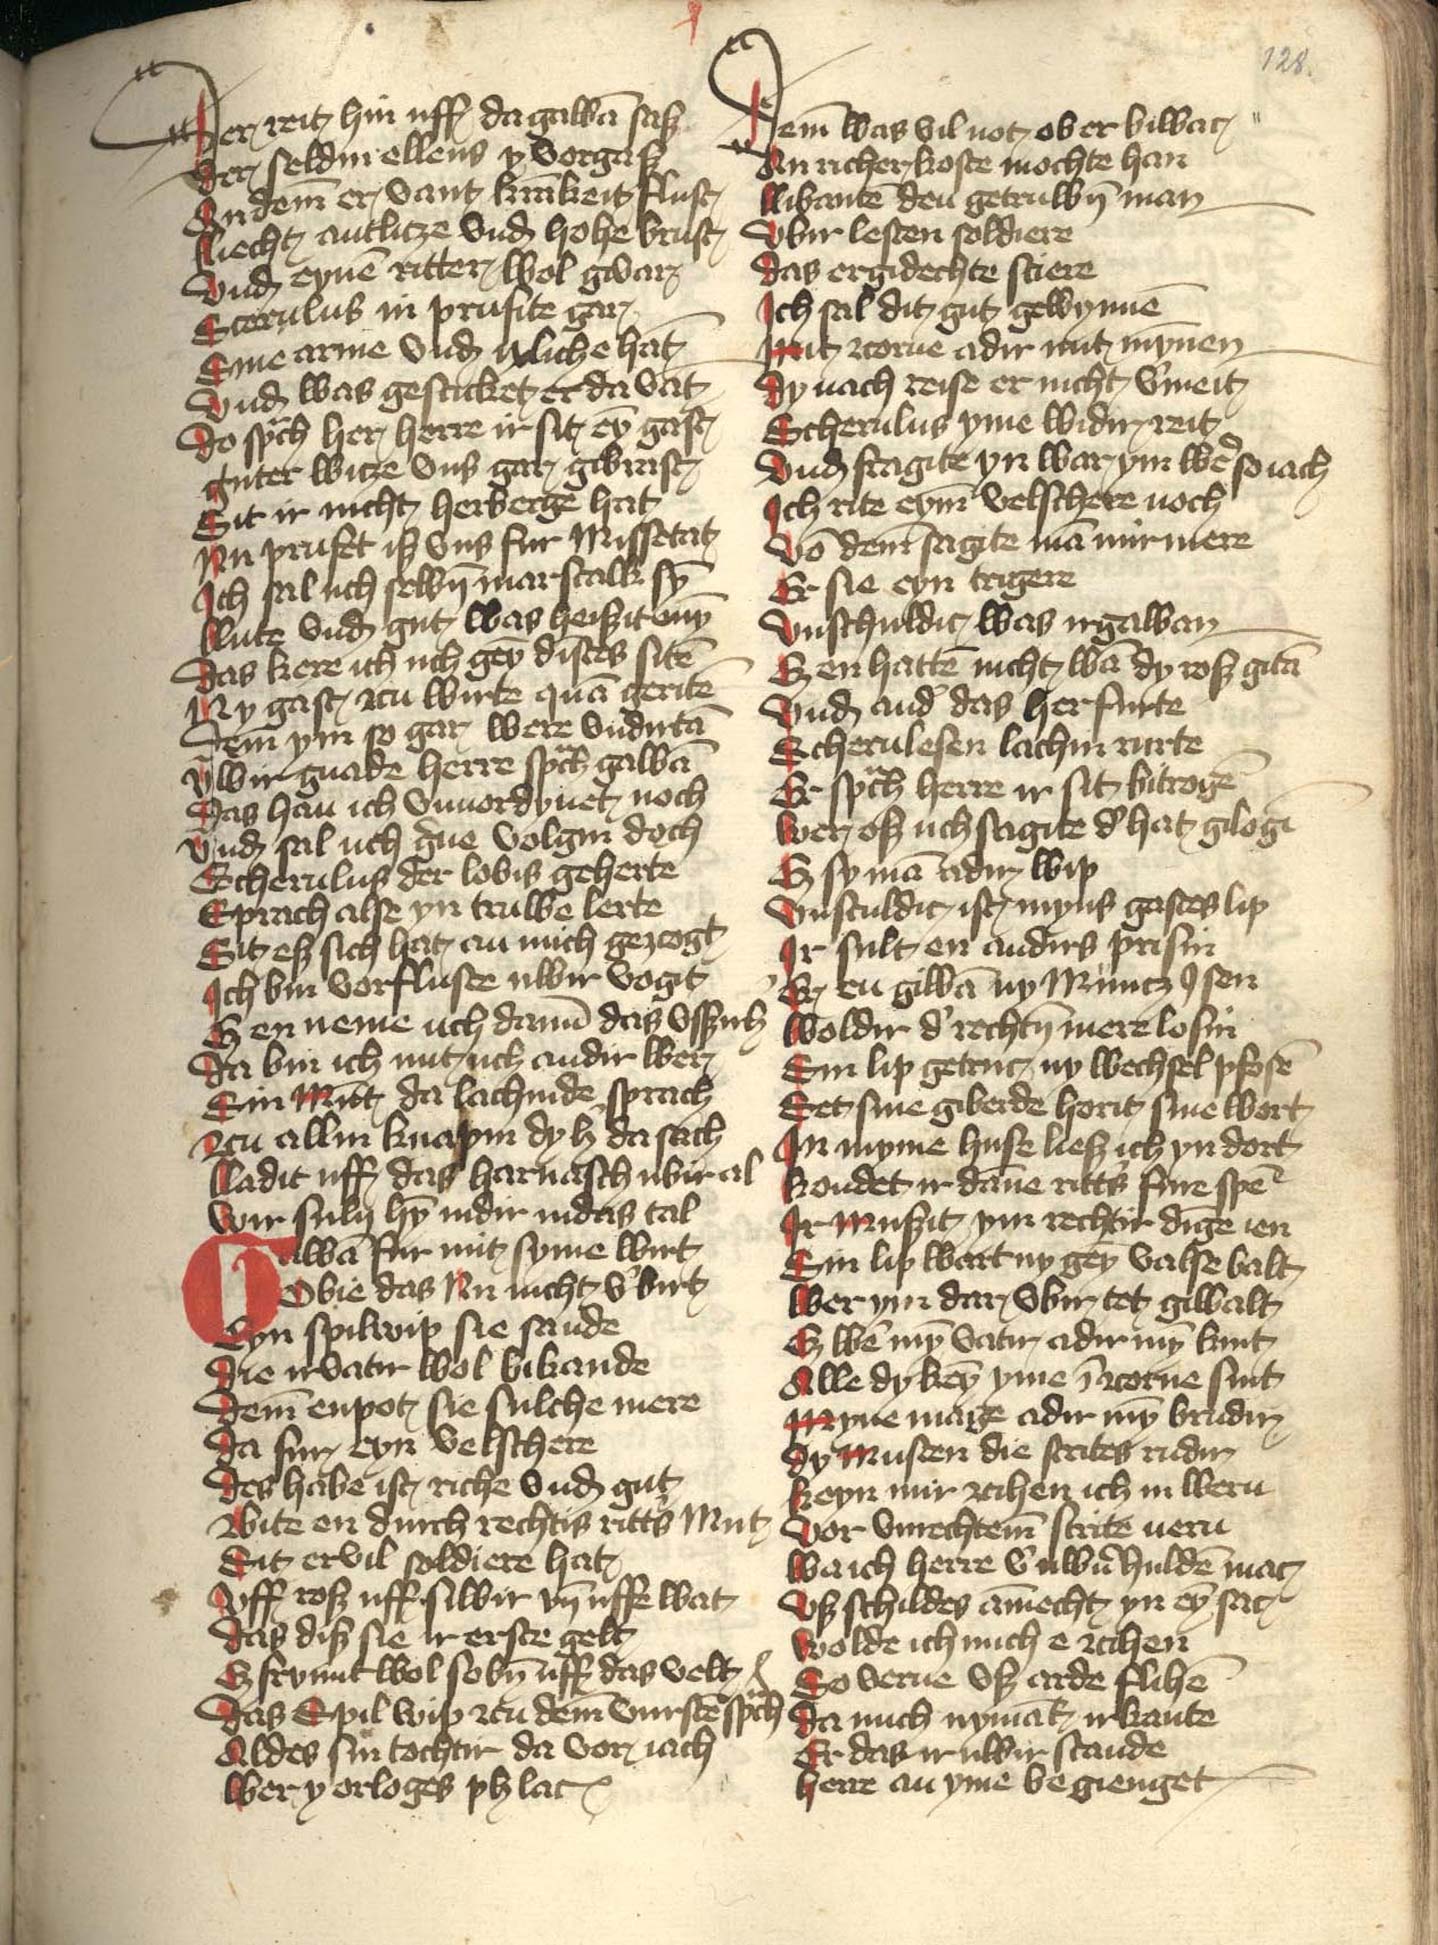 128.
Der reit hin uff da gawā saß
Der seldin ellens y vorgaß
An dem̄ er vant krākeit flust
Liecht antlitze vnd hohe brust
Vnd eynē ritter wol gvar
Scerulus in prufite gar
Sine arme vnd ykliche hāt
Vnd was gesticket er da vāt
Do sp̃ch her herre ir sit eȳ gast
guter witze vns gar gibrist
Sit ir nicht herberge hat
Nu prufet iß vns fur Missetat
Ich sal uch selwῡ marstalk sȳ
Lute vnd gut was heißit mȳ
Das kere ich uch geȳ distes sitē
Ny gast zcu wirte quā geritē
Dem̄ ym so gar were vndirtā
Uwir gnade herre sp̃ch gawā
Das han ich vnuordynet noch
Vnd sal uch g̃ne volgin doch
Scherulus der lobis geherte
Sprach alse yn truwe lerte
Sit eß sich hat an mich gezcogt
Ich bin vorfluste uwir vogit
Eß en neme uch danu das vßsirhß
Da bin ich mit uch andir wer
Sin Mūt da lachinde sprach
Zcu allin knapin dy h̃ da sach
Ladit uff das harnasch ubir al
Wir suly hȳ nidir indas tal
Gawā fur mit syme wirt
Obie das Nu nicht v̓birt
Eyn spilwip sie sande
Die ir vatir wol bikande
Dem̄ enpot sie sulche mere
Da fur eyn velschere
Des habe ist riche vnd gut
Bite en durch rechtis ritt̓s Mut
Sit er vil soldiere hat
Vff roß uff silwir vn̄ uffe wat
Das diß sie ir erste gelt
Eß frumt wol sobn̄ uff das velt
Das Spil wip zcu dem̄ vurstē sp̃ch
Aldes sin tochtir da vor iach
Wer y orloges phlac
Dem̄ was vil not ob er biwac
An richer koste mochte han
Libautē den getruwn̄ man
Vbir lesten soldiere
Das er gidechte stiere
Ich sal dit gut gewynnē
Mit zcorne adir mit mȳnen
Dy nach reise er nicht v̓meit
Scherulus yme widir reit
Vnd fragite yn war ym we͛ so iach
Ich rite eym̄ velschere noch
Vō dem̄ sagite mā mir mere
Er sie eyn trigere
Vnschuldic was ir gawan
Eß en hattē nicht wā dy roß gitā
Vnd and̓ das her furte
Scherulesen lachin rurte
Er sp̃ch herre ir sit bitrogē
Wer eß uch sagite d̓ hat gilogī
Eß sy mā adir wip
Vnsculdic ist myns gastes lip
Ir sult en andirs prisin
Er en giwā ny Muntz Isen
Woldir d̓ rechtn̄ mere losin
Sin lip getruc ny wechsel pfosē
Set sine giberde horit sine wort
In myme huse ließ ich yn dort
Kondet ir dāne ritt̓s fure spē
Ir Mußit ym rechtir dīge ien
Sin lip wart ny gey valse balt
Wer ym dar vbir tet giwalt
Eß we͛ mȳ vatir adir mȳ kint
Alle dy keȳ yme ī zcorne sint
Myne mage adir mȳ brudir
Dy Musten die strites rudir
Keyn mir zcihen ich in wern
Vor vnrechtem̄ strite nern
Wa ich herre v̓ uwir huldē mac
Vß schildes āmecht yn eȳ sac
Wolde ich mich e zcihen
So verne vß arde flihē
Da mich nymāt irkante
Er das ir uwir scande
Herre an yme begienget